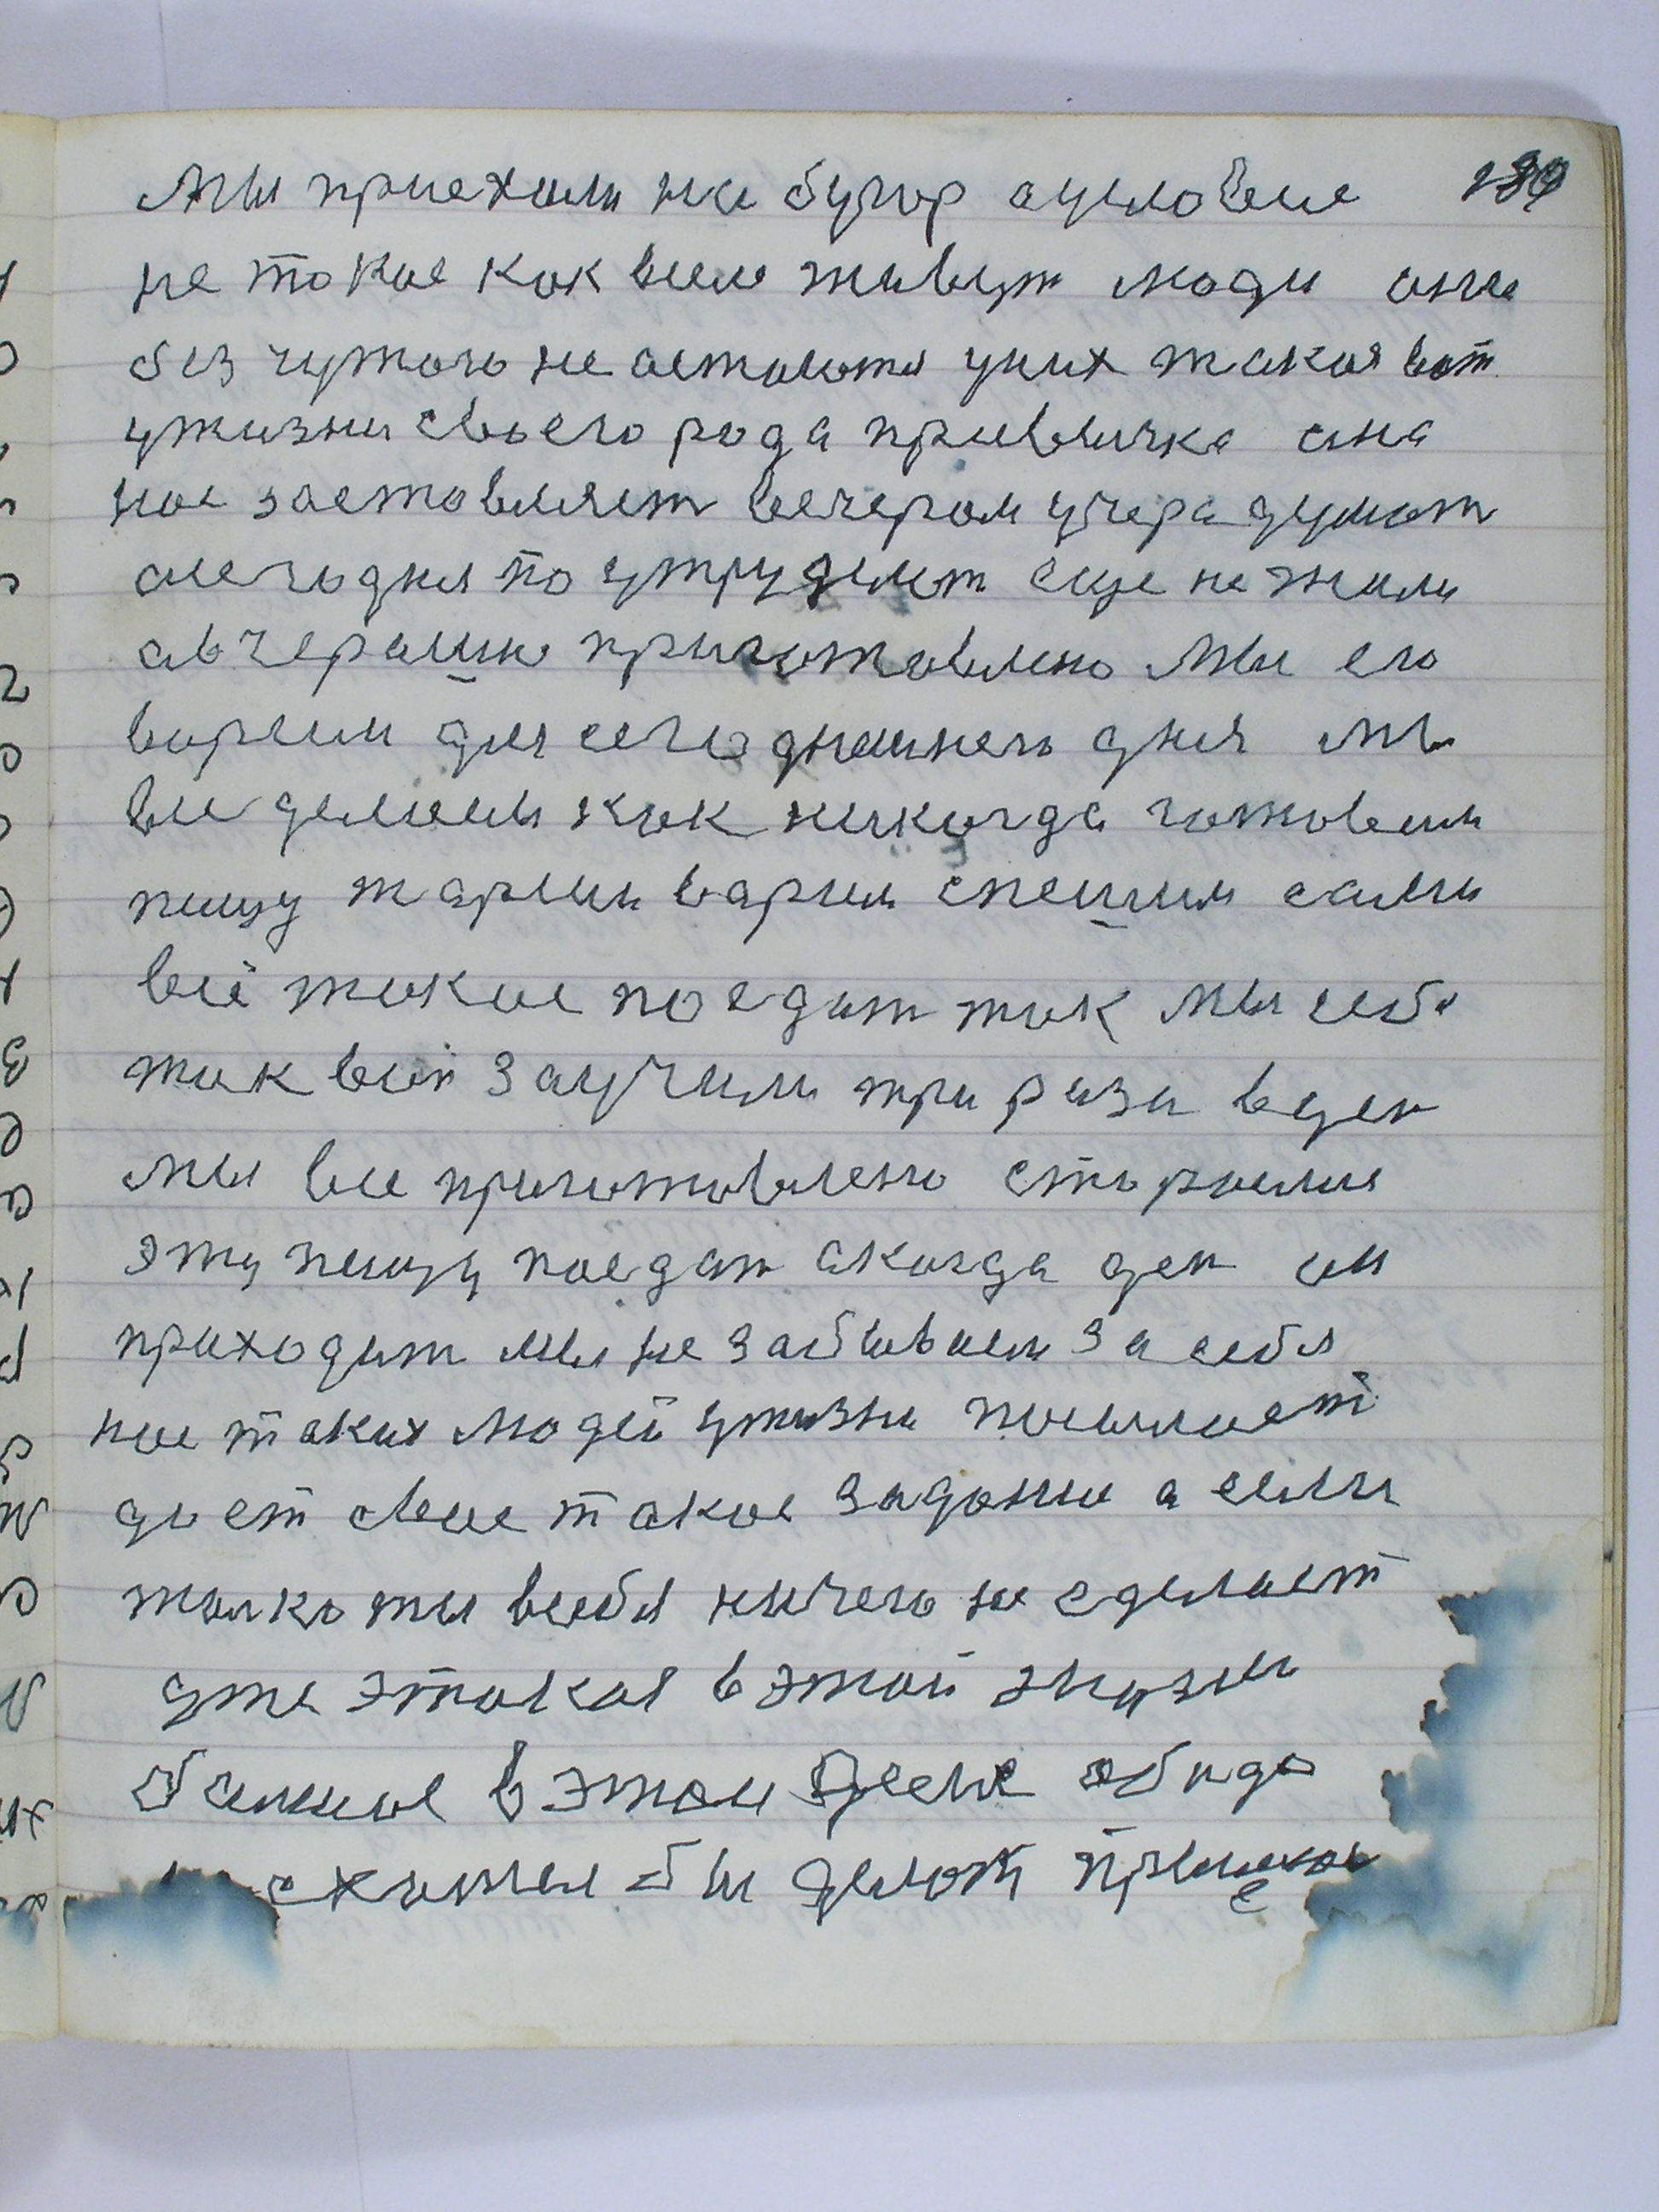 Мы приехали на бугор а условие
не такое как все живут люди они
без чутого не астаются у них такая вот
у жизни своего рода привычка она
нас заставляет вечером учера думат
а сегодня по утру делат еще не жили
а вчерашно приготовлено Мы его
варим для сегоднашнего дня мы
все делаем как никогда готовим
пищу жарим варим спешим сами
всё такое поедат так мы себя
так всех заучили три раза в ден
мы все приготовлено стораемся
эту пищу поедат а когда ден он
приходит мы не забываем за себя
нас таких людей у жизни посылает
дает свое такое задание а если
толко ты в себя ничего не сделает
уже этакая в этой жизни
болшое в этом деле обида
схотел бы делат